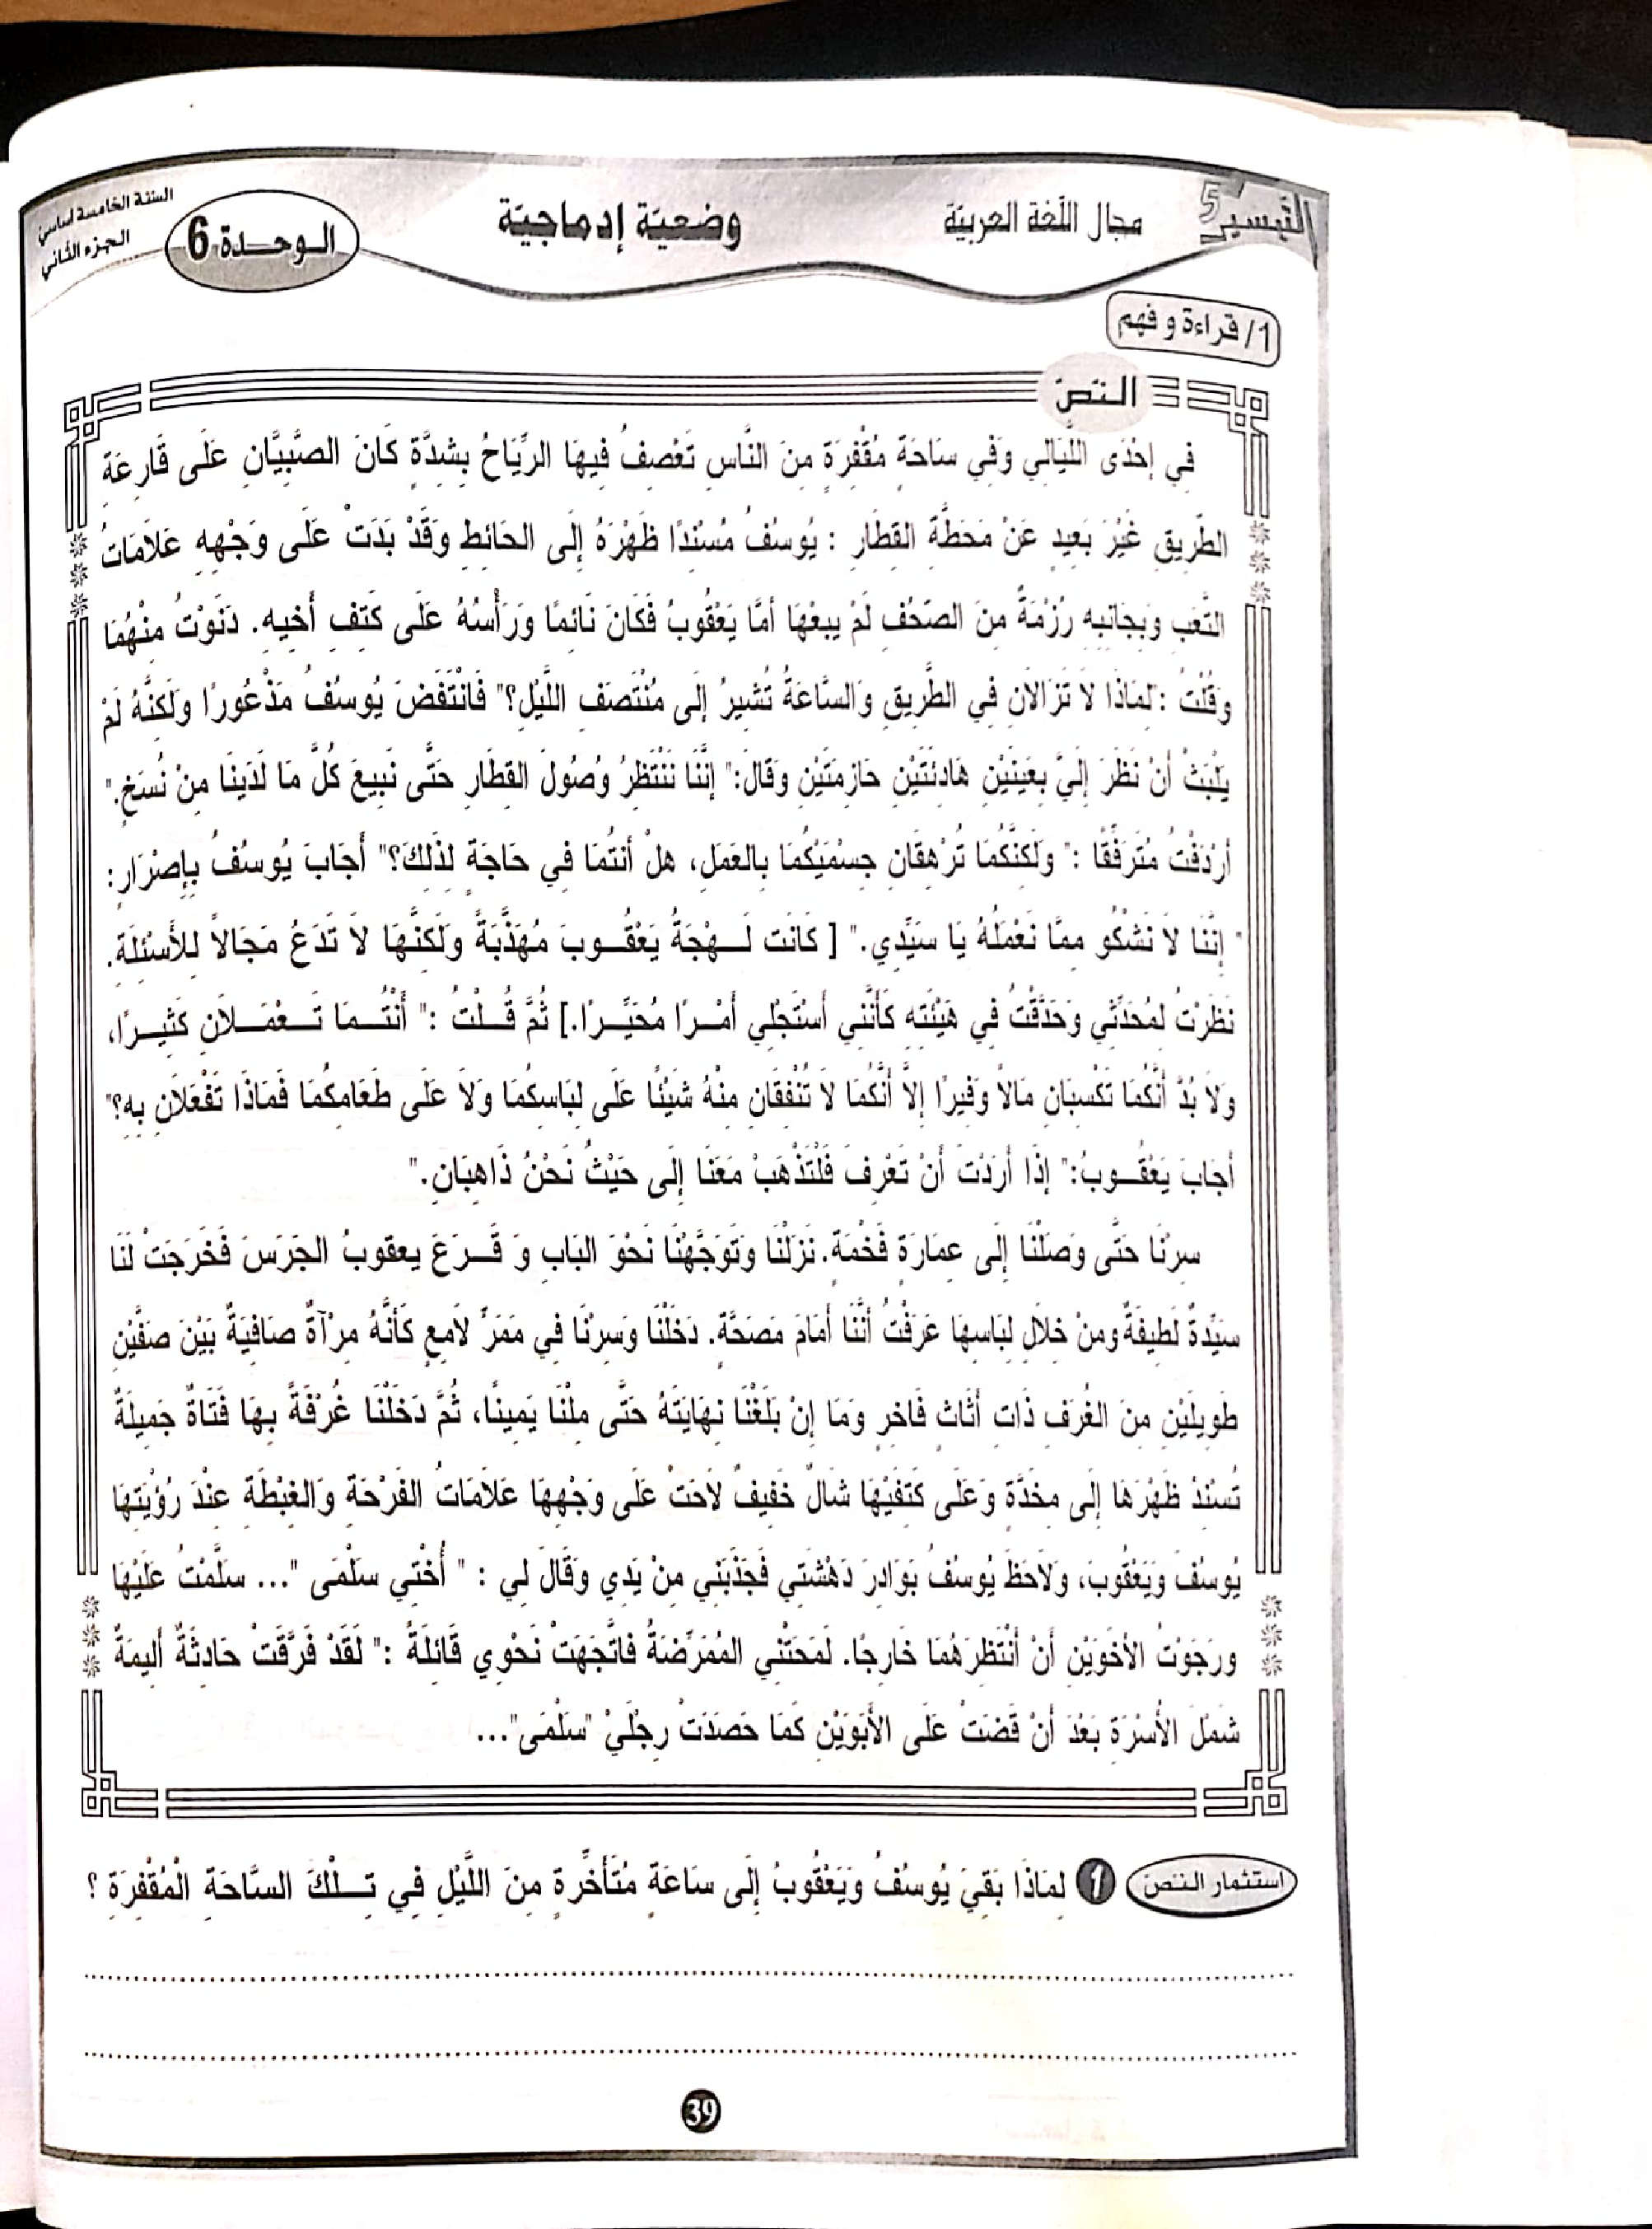 التيسير 5
مجال اللّغة العربيّة
وضعيّة إدماجيّة
الـوحـــدة 6
السنة الخامسة أساسي
الجزء الثاني
1/ قراءة و فهم
النـّصّ
فِي إِحْدَى اللَّيَالِي وَفِي سَاحَةٍ مُقْفِرَةٍ مِنَ النَّاسِ تَعْصِفُ فِيهَا الرِّيَاحُ بِشِدَّةٍ كَانَ الصَّبِيَّانِ عَلَى قَارِعَةِ
الطَّرِيقِ غَيْرَ بَعِيدٍ عَنْ مَحَطَّةِ القِطَارِ : يُوسُفُ مُسْنِدًا ظَهْرَهُ إِلَى الحَائِطِ وَقَدْ بَدَتْ عَلَى وَجْهِهِ عَلَامَاتُ
التَّعَبِ وَبِجَانِبِهِ رُزْمَةٌ مِنَ الصُّحُفِ لَمْ يَبِعْهَا أمَّا يَعْقُوبُ فَكَانَ نَائِمًا وَرَأْسُهُ عَلَى كَتِفِ أَخِيهِ. دَنَوْتُ مِنْهُمَا
وَقُلْتُ :"لِمَاذَا لاَ تَزَالاَنِ فِي الطَّرِيقِ وَالسَّاعَةُ تُشِيرُ إِلَى مُنْتَصَفِ اللَّيْلِ؟" فَانْتَفَضَ يُوسُفُ مَذْعُورًا وَلَكِنَّهُ لَمْ
يَلْبَثْ أَنْ نَظَرَ إِلَيَّ بِعَيْنَيْنِ هَادِئَتَيْنِ حَازِمَتَيْنِ وَقَالَ:" إِنَّنَا نَنْتَظِرُ وُصُولَ القِطَارِ حَتَّى نَبِيعَ كُلَّ مَا لَدَيْنَا مِنْ نُسَخٍ."
أَرْدَفْتُ مُتَرَفِّقًا :" وَلَكِنَّكُمَا تُرْهِقَانِ جِسْمَيْكُمَا بِالعَمَلِ، هَلْ أَنْتُمَا فِي حَاجَةٍ لِذَلِكَ؟" أَجَابَ يُوسُفُ بِإِصْرَارٍ :
" إِنَّنَا لاَ نَشْكُو مِمَّا نَعْمَلُهُ يَا سَيِّدِي." [ كَانَت لَـــهْجَةُ يَعْقُـــوبَ مُهَذَّبَةً وَلَكِنَّهَا لاَ تَدَعُ مَجَالاً لِلأَسْئِلَةِ.
نَظَرْتُ لِمُحَدِّثِي وَحَدَّقْتُ فِي هَيْئَتِهِ كَأَنَّنِي أَسْتَجْلِي أَمْــرًا مُحَيِّــرًا.] ثُمَّ قُـــلْتُ :" أَنْتُـــمَا تَـــعْمَـــلاَنِ كَثِيــرًا،
وَلاَ بُدَّ أَنَّكُمَا تَكْسِبَانِ مَالاً وَفِيرًا إِلاَّ أَنَّكُمَا لاَ تُنْفِقَانِ مِنْهُ شَيْئًا عَلَى لِبَاسِكُمَا وَلاَ عَلَى طَعَامِكُمَا فَمَاذَا تَفْعَلاَنِ بِهِ؟"
أَجَابَ يَعْقُـــوبُ:" إِذَا أَرَدْتَ أَنْ تَعْرِفَ فَلْتَذْهَبْ مَعَنَا إِلَى حَيْثُ نَحْنُ ذَاهِبَانِ."
سِرْنَا حَتَّى وَصَلْنَا إِلَى عِمَارَةٍ فَخْمَةٍ. نَزَلْنَا وَتَوَجَّهْنَا نَحْوَ البَابِ وَ قَـــرَعَ يعقوبُ الجَرَسَ فَخَرَجَتْ لَنَا
سَيِّدَةٌ لَطِيفَةٌ وَمِنْ خِلاَلِ لِبَاسِهَا عَرَفْتُ أَنَّنَا أَمَامَ مَصَحَّةٍ. دَخَلْنَا وَسِرْنَا فِي مَمَرٍّ لاَمِعٍ كَأَنَّهُ مِرْآةٌ صَافِيَةٌ بَيْنَ صَفَّيْنِ
طَوِيلَيْنِ مِنَ الغُرَفِ ذَاتِ أَثَاثٍ فَاخِرٍ وَمَا إِنْ بَلَغْنَا نِهَايَتَهُ حَتَّى مِلْنَا يَمِينًا، ثُمَّ دَخَلْنَا غُرْفَةً بِهَا فَتَاةٌ جَمِيلَةٌ
تُسْنِدُ ظَهْرَهَا إِلَى مِخَدَّةٍ وَعَلَى كَتِفَيْهَا شَالٌ خَفِيفٌ لاَحَتْ عَلَى وَجْهِهَا عَلاَمَاتُ الفَرْحَةِ وَالغِبْطَةِ عِنْدَ رُؤْيَتِهَا
يُوسُفَ وَيَعْقُوبَ، وَلاَحَظَ يُوسُفُ بَوَادِرَ دَهْشَتِي فَجَذَبَنِي مِنْ يَدِي وَقَالَ لِي : " أُخْتِي سَلْمَى "... سَلَّمْتُ عَلَيْهَا
وَرَجَوْتُ الأَخَوَيْنِ أَنْ أَنْتَظِرَهُمَا خَارِجًا. لَمَحَتْنِي المُمَرِّضَةُ فَاتَّجَهَتْ نَحْوِي قَائِلَةً :" لَقَدْ فَرَّقَتْ حَادِثَةٌ أَلِيمَةٌ
شَمْلَ الأُسْرَةِ بَعْدَ أَنْ قَضَتْ عَلَى الأَبَوَيْنِ كَمَا حَصَدَتْ رِجْلَيْ "سَلْمَى"...
استثمار النـّصّ 1 لِمَاذَا بَقِيَ يُوسُفُ وَيَعْقُوبُ إِلَى سَاعَةٍ مُتَأَخِّرَةٍ مِنَ اللَّيْلِ فِي تِـــلْكَ السَّاحَةِ الْمُقْفِرَةِ ؟
39